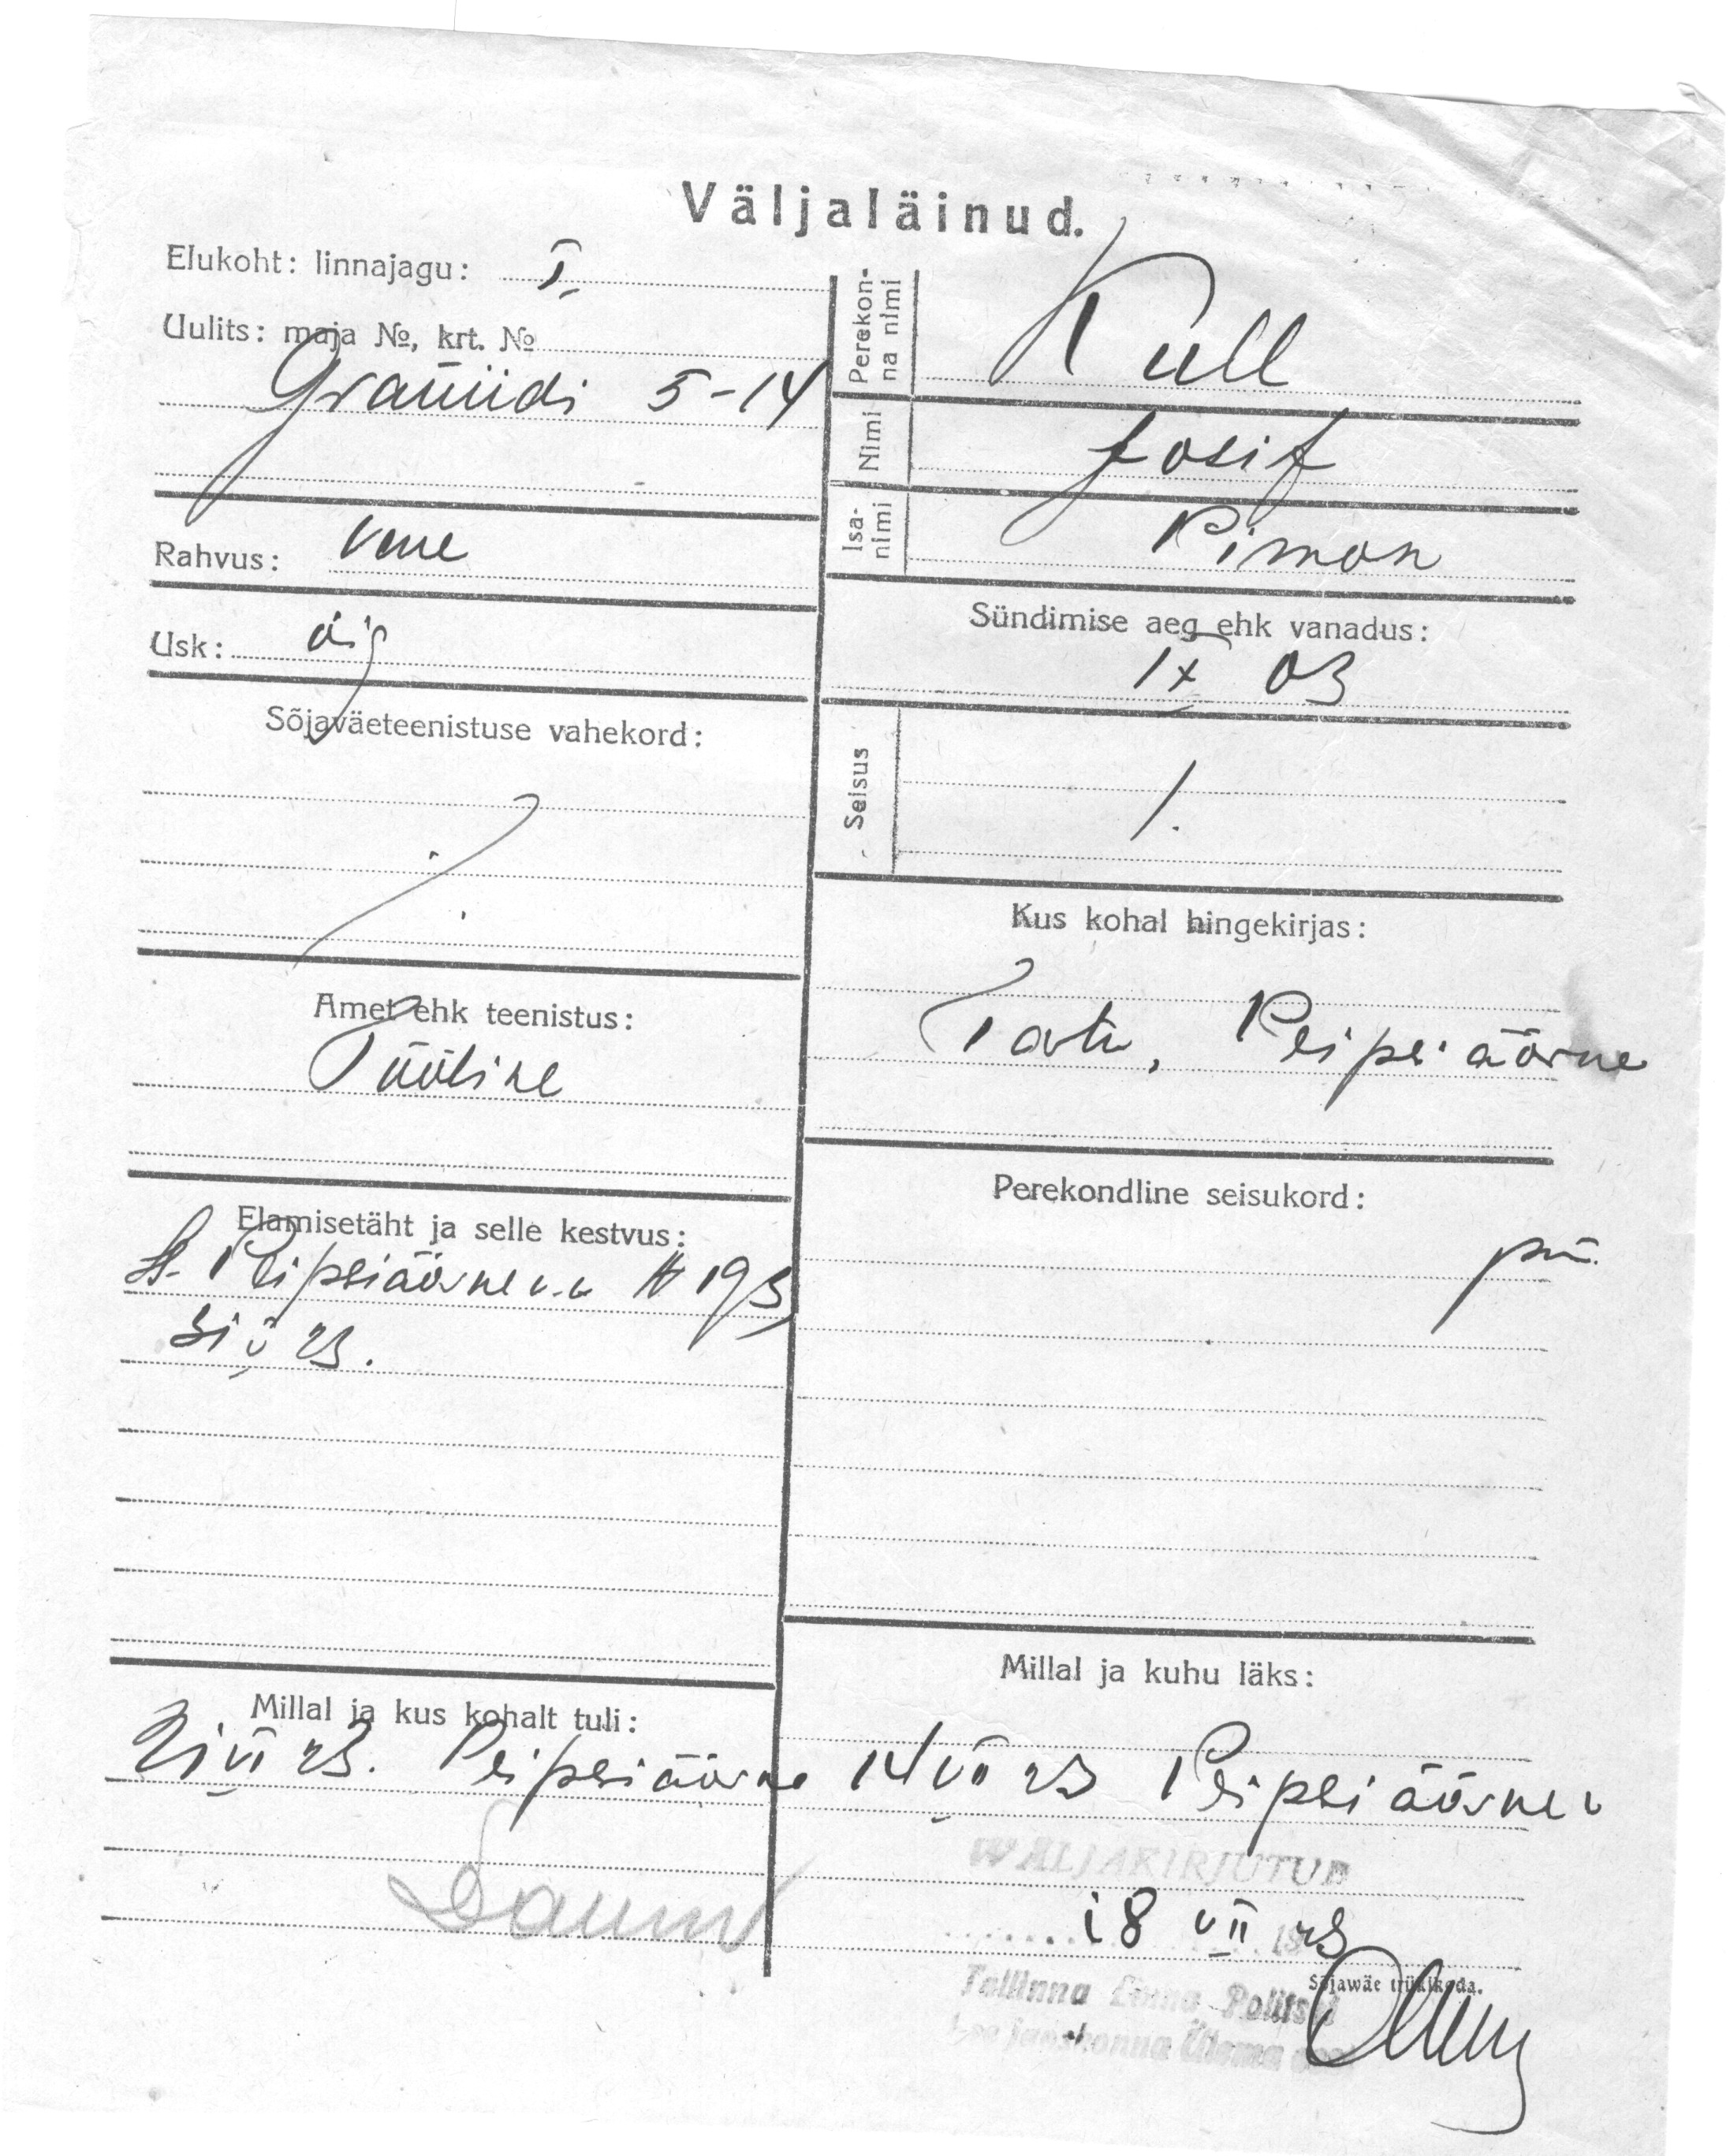 Väljaläinud.
Elukoht: linnajagu: I
Uulits: maja №, krt. №
Graniidi 5-14
Rahvus: vene
Usk: õig
Sõjaväeteenistuse vahekord:
Amet ehk teenistus:
Tööline
Elamisetäht ja selle kestvus:
Peipsiäärne v.v. № 193
Millal ja kus kohalt tuli:
VI 23. Peipsiäärne
Perekonna nimi
Kull
Nimi
Josif
Isanimi
Pimon
Sündimise aeg ehk vanadus:
IX 03
Seisus
Kus kohal hingekirjas:
Tartu, Peipsiäärne
Perekondline seisukord:
Millal ja kuhu läks:
14 VII 23 Peipsiäärne v
WÄLJAKIRJUTUD
18 VII 23
Sõjawäe trükikoda.
Tallinna Linna Politsei
jaoskonna Ülema